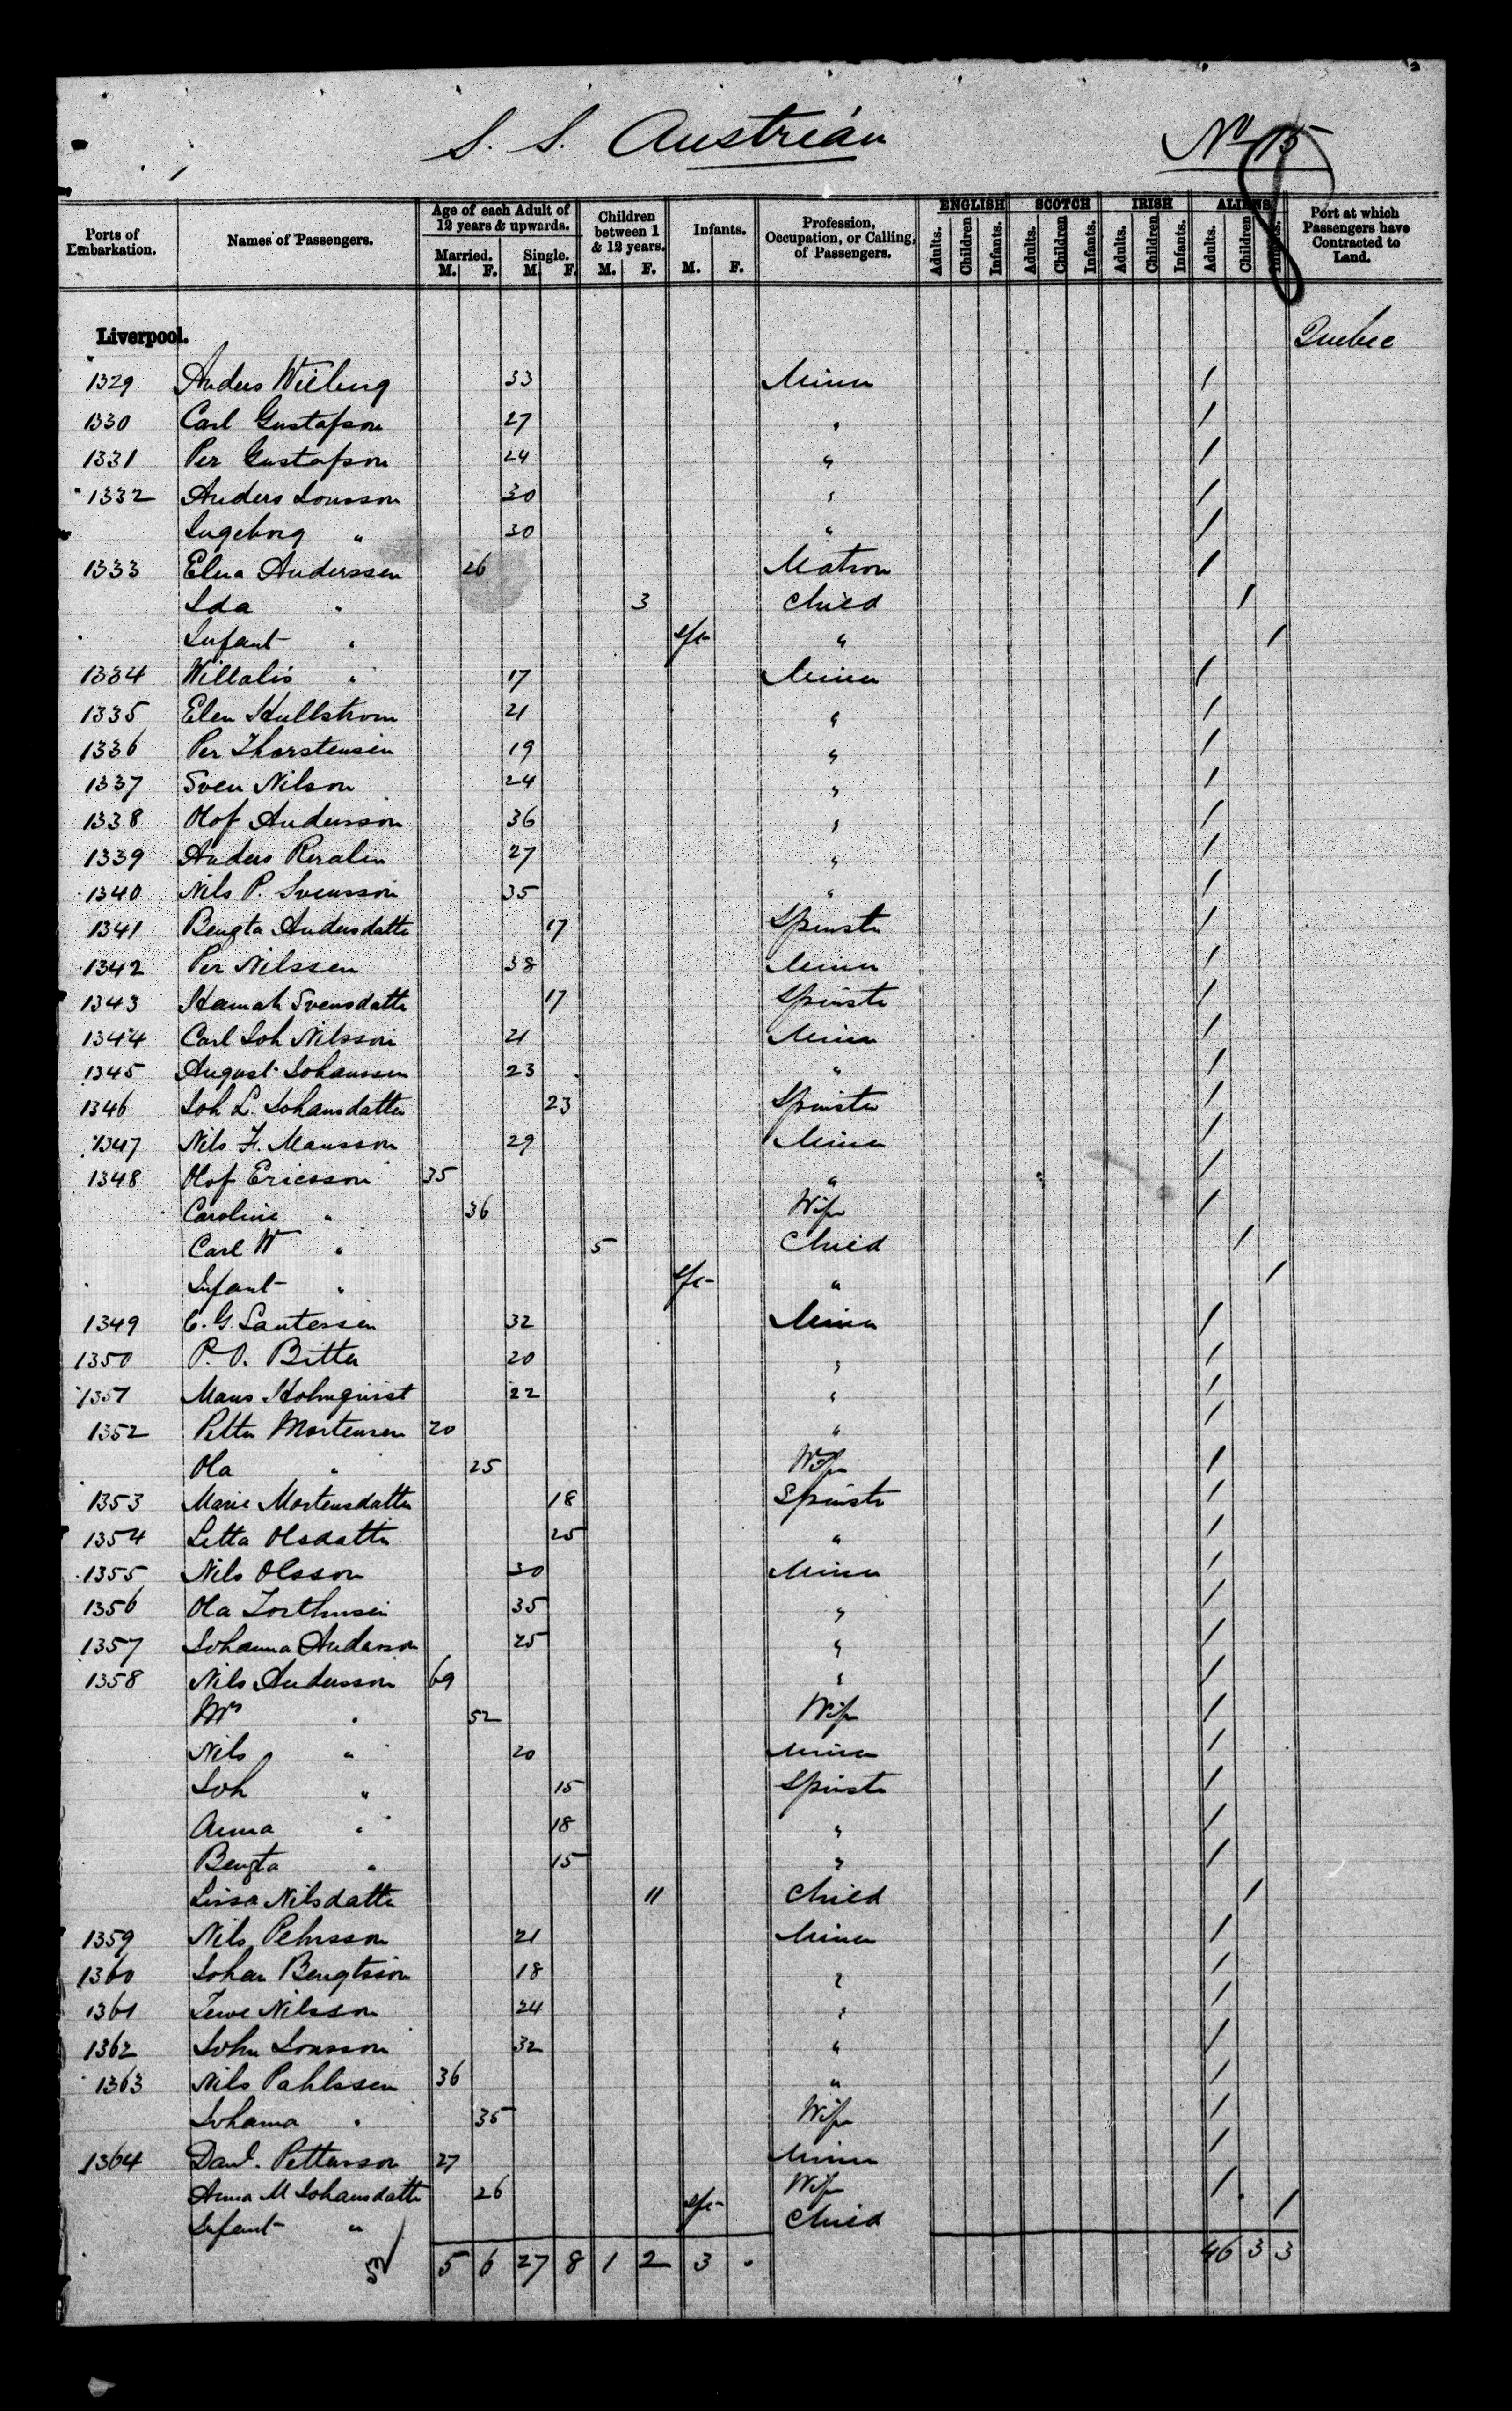 S. S. Austrian
No 15
8
Ports of Embarkation. Names of Passengers. Age of each Adult of 12 years & upwards. Married. M. F. Single. M. F. Children between 1 & 12 years. M. F. Infants. M. F. Profession, Occupation, or Calling, of Passengers. ENGLISH Adults. Children Infants. SCOTCH Adults. Children Infants. IRISH Adults. Children Infants. ALIENS Adults. Children Infants. Port at which Passengers have Contracted to Land.
Liverpool. Quebec
1329 Anders Wiberg 33 Miner /
1330 Carl Gustafson 27 " /
1331 Per Gustafson 24 " /
1332 Anders Jonsson 30 " /
Ingeborg " 30 " /
1333 Elna Anderssen 26 Matron /
Ida " 3 Child /
Infant " " /
1334 " 17 Miner /
1335 Elen Hullstrom 21 " /
1336 Per Thorstensen 19 " /
1337 Sven Nilson 24 " /
1338 Olof Andersson 36 " /
1339 Anders 27 " /
1340 Nils P. Svensson 35 " /
1341 Bengta Andersdatter 17 Spinster /
1342 Per Nilssen 38 Miner /
1343 Hannah Svensdatter 17 Spinster /
1344 Carl Joh Nilsson 21 Miner /
1345 August Johanssen 23 " /
1346 Joh L. Johansdatter 23 Spinster /
1347 Nils F. Mansson 29 Miner /
1348 Olof Ericsson 35 " /
Caroline " 36 Wife /
Carl W " 5 Child /
Infant " " /
1349 C. G. Santessen 32 Miner /
1350 P. O. Bitter 20 " /
1351 Mans Holmquist 22 " /
1352 Petter Mortensen 20 " /
Ola " 25 Wife /
1353 Marie Mortensdatter 18 Spinster /
1354 Jetta Olsdatter 25 " /
1355 Nils Olsson 30 Miner /
1356 Ola 35 " /
1357 Johanna Anderson 25 " /
1358 Nils Andersson 69 " /
Mrs " 52 Wife /
Nils " 20 Miner /
Joh " 15 Spinster /
Anna " 18 " /
Bengta " 15 " /
Lissa Nilsdatter 11 Child /
1359 Nils Pehrsson 21 Miner /
1360 Johan Bengtsson 18 " /
1361 Nilsson 24 " /
1362 John Jonsson 32 " /
1363 Nils Pahlssen 36 " /
Johanna " 35 Wife /
1364 Danl. Pettersson 27 Miner /
Anna M Johansdatter 26 Wife /
Infant " Child /
5 6 27 8 1 2 3 . 46 3 3